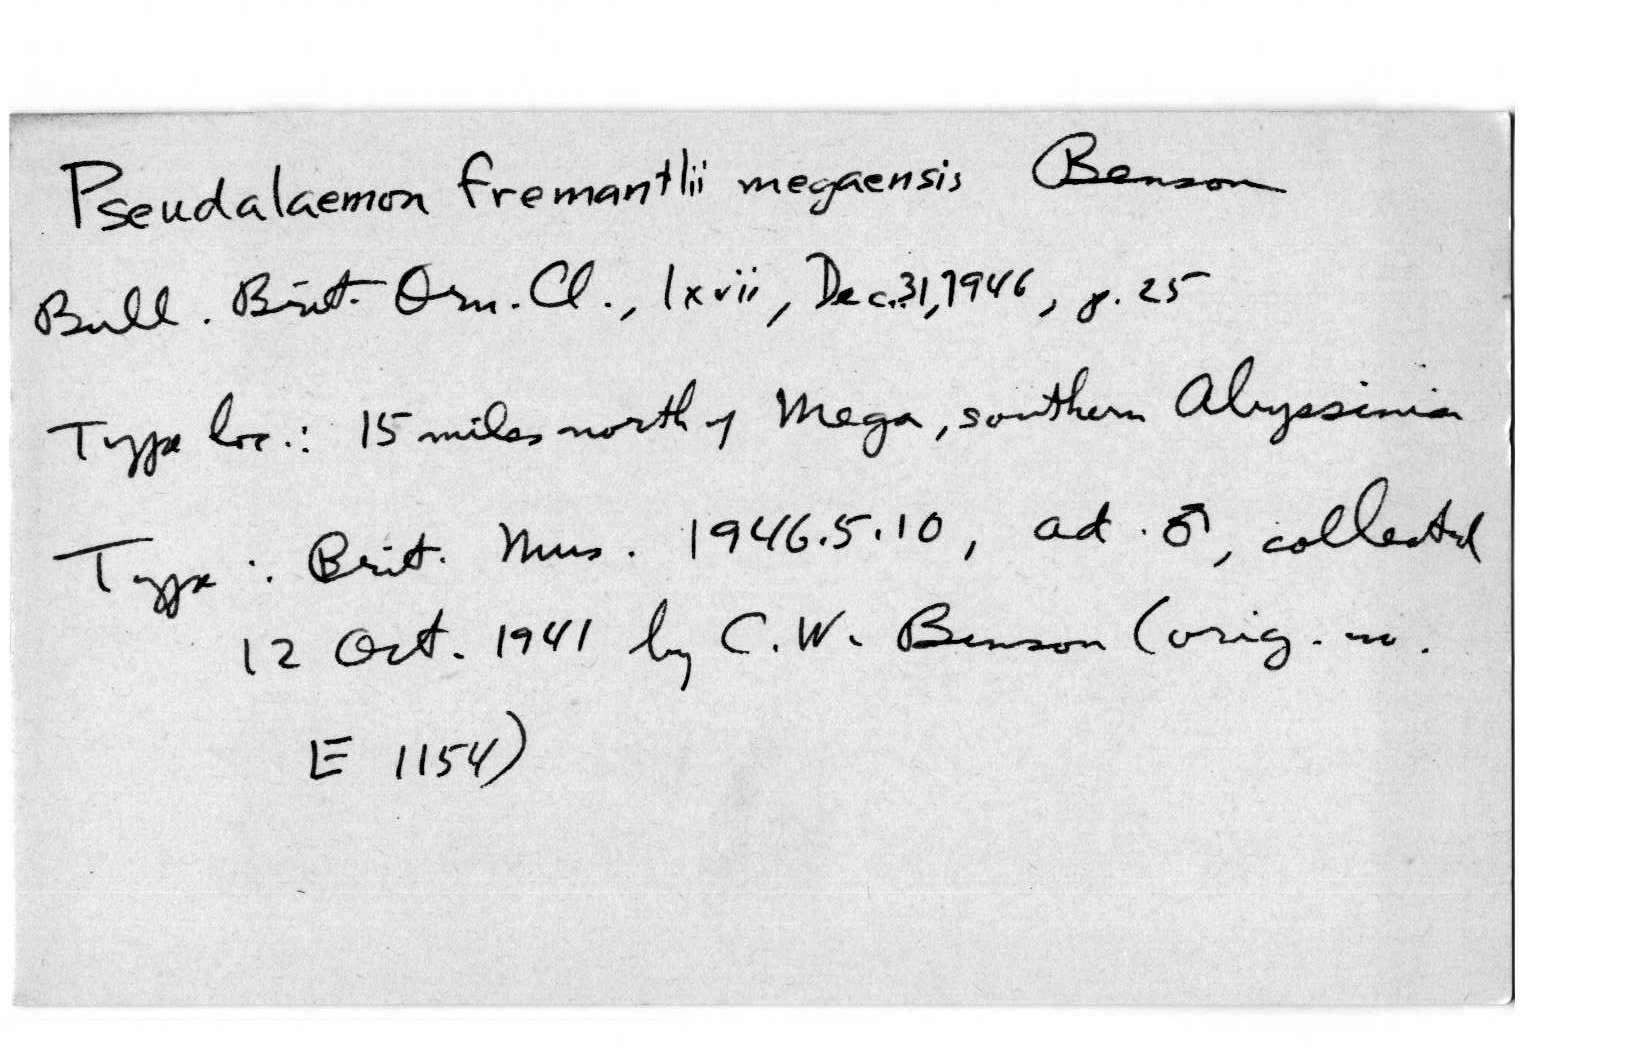 Pseudalaemon fremantlii megaensis Benson
Bull. Brit. Orn. Cl., lxvii, Dec. 31, 1946, p. 25
Type loc.: 15 miles north of Mega, southern Abyssinia
Type: Brit. Mus. 1946.5.10, ad. ♂, collected
12 Oct. 1941 by C. W. Benson (orig. no.
E 1154)